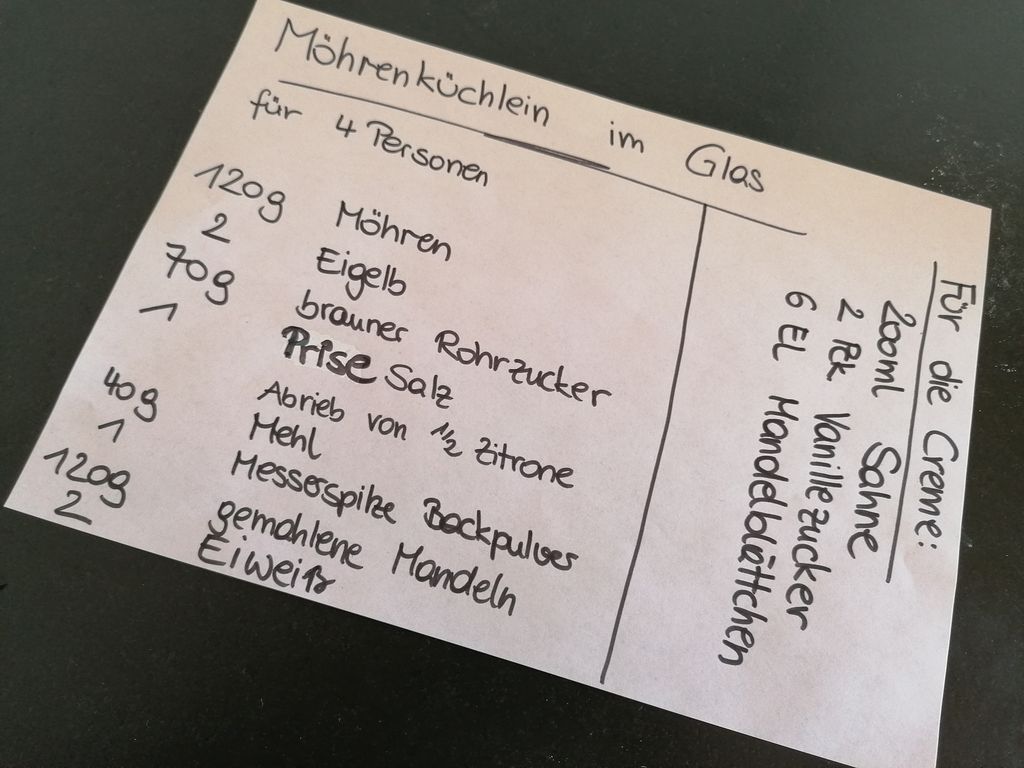 Möhrenküchlein im Glas
für 4 Personen
120g Möhren
2 Eigelb
70g brauner Rohrzucker
1 Prise Salz
Abrieb von 1/2 Zitrone
40g Mehl
1 Messerspitze Backpulver
120g gemahlene Mandeln
2 Eiweiß
Für die Creme:
200ml Sahne
2 Pck Vanillezucker
6 EL Mandelblättchen